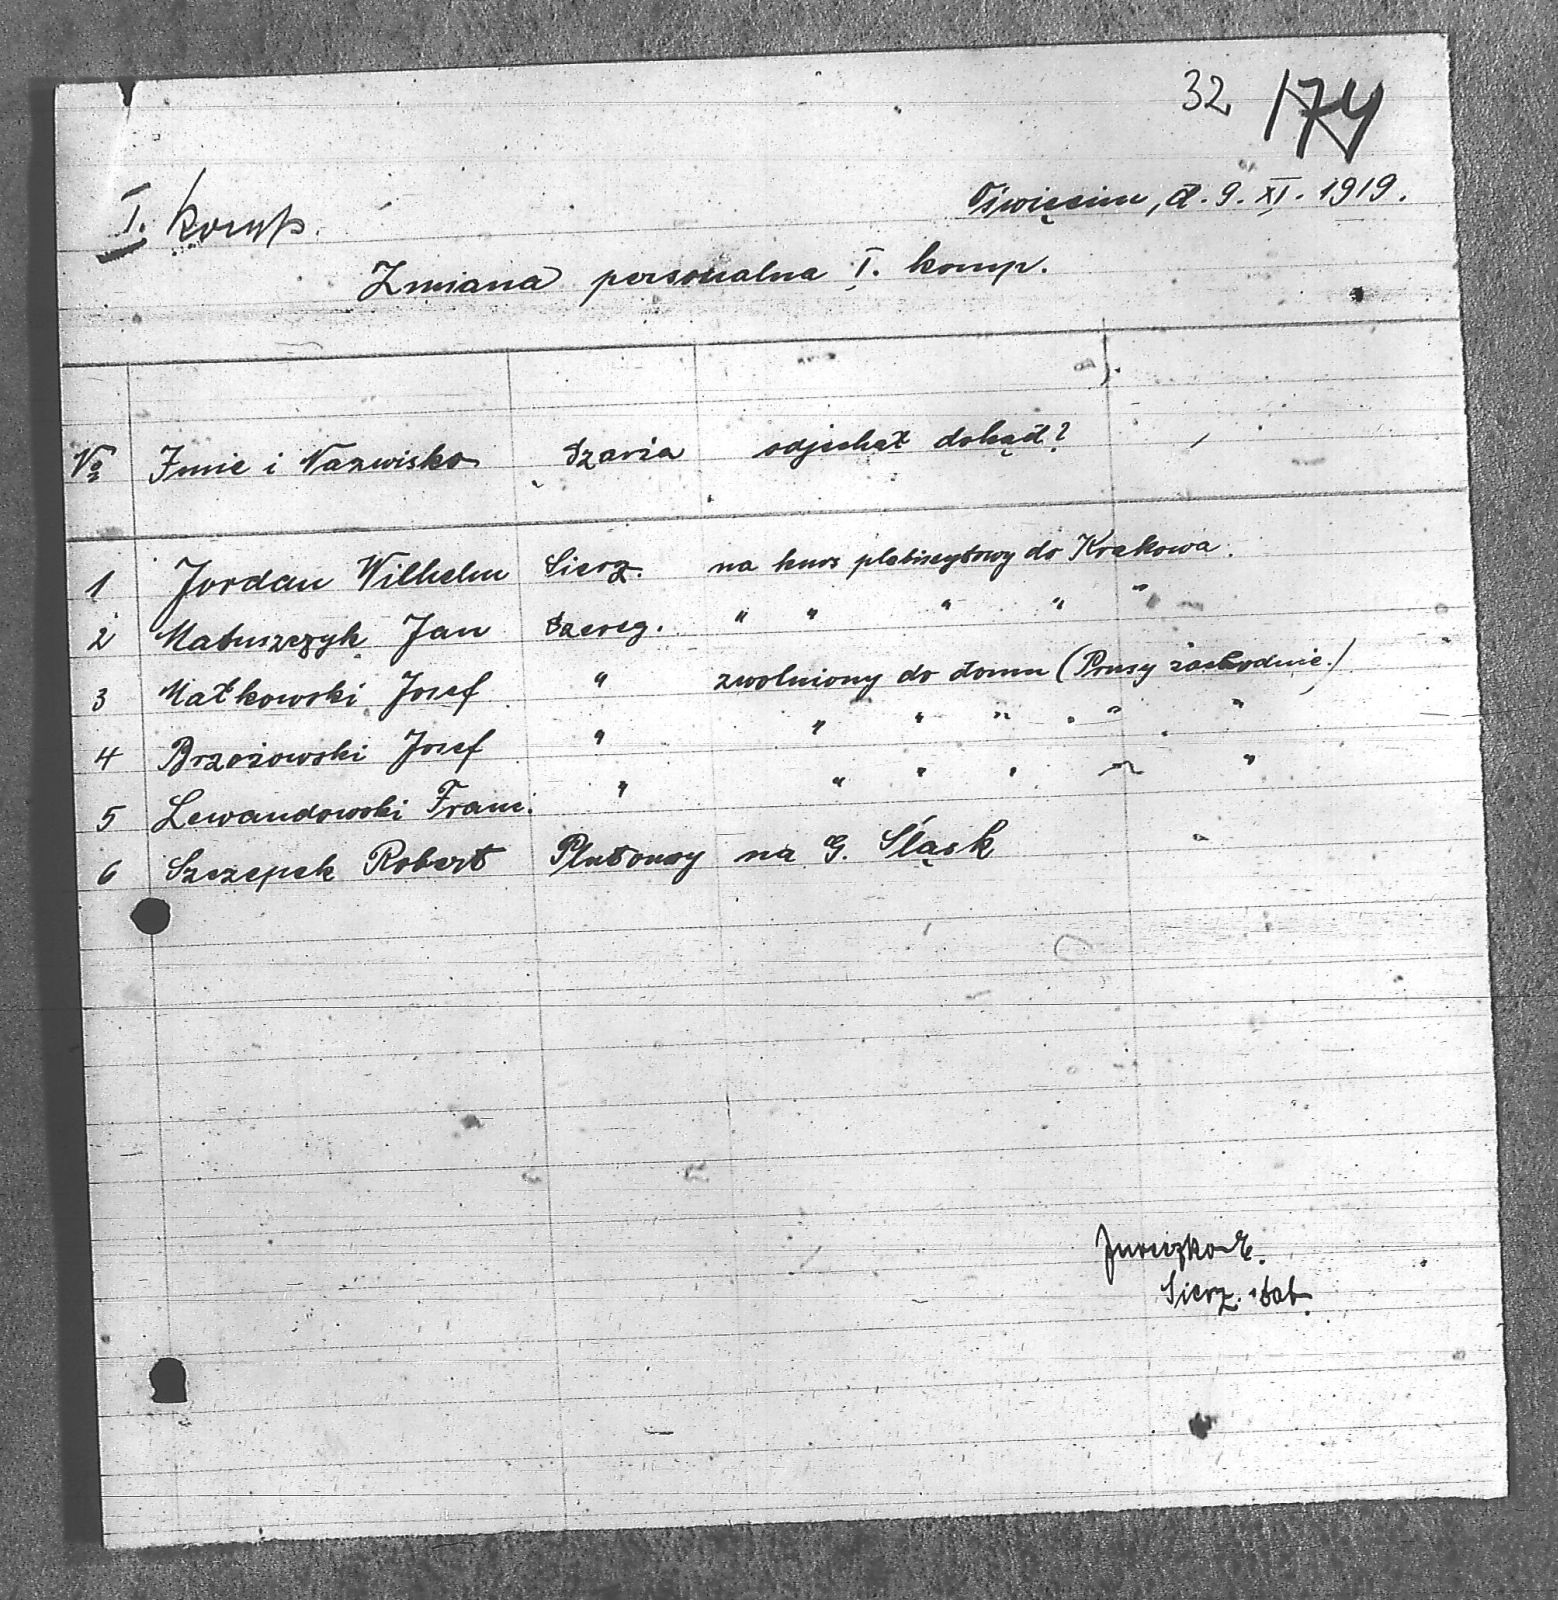 32 174
Oświęcim, d. 9. XI. 1919.
I. komp.
Zmiana personalna I. komp.
No Imie i Nazwisko Szarża odjechał dokąd?
1 Jordan Wilhelm Sierż. na kurs plebiscytowy do Krakowa.
2 Matuszczyk Jan Szereg. " " " " "
3 Małkowski Josef " zwolniony do domu (Prusy zachodnie.)
4 Brzozowski Josef " " " " " "
5 Lewandowski Franc. " " " " " "
6 Szczepek Robert Plutonowy na G. Śląsk
Sierż. szt.